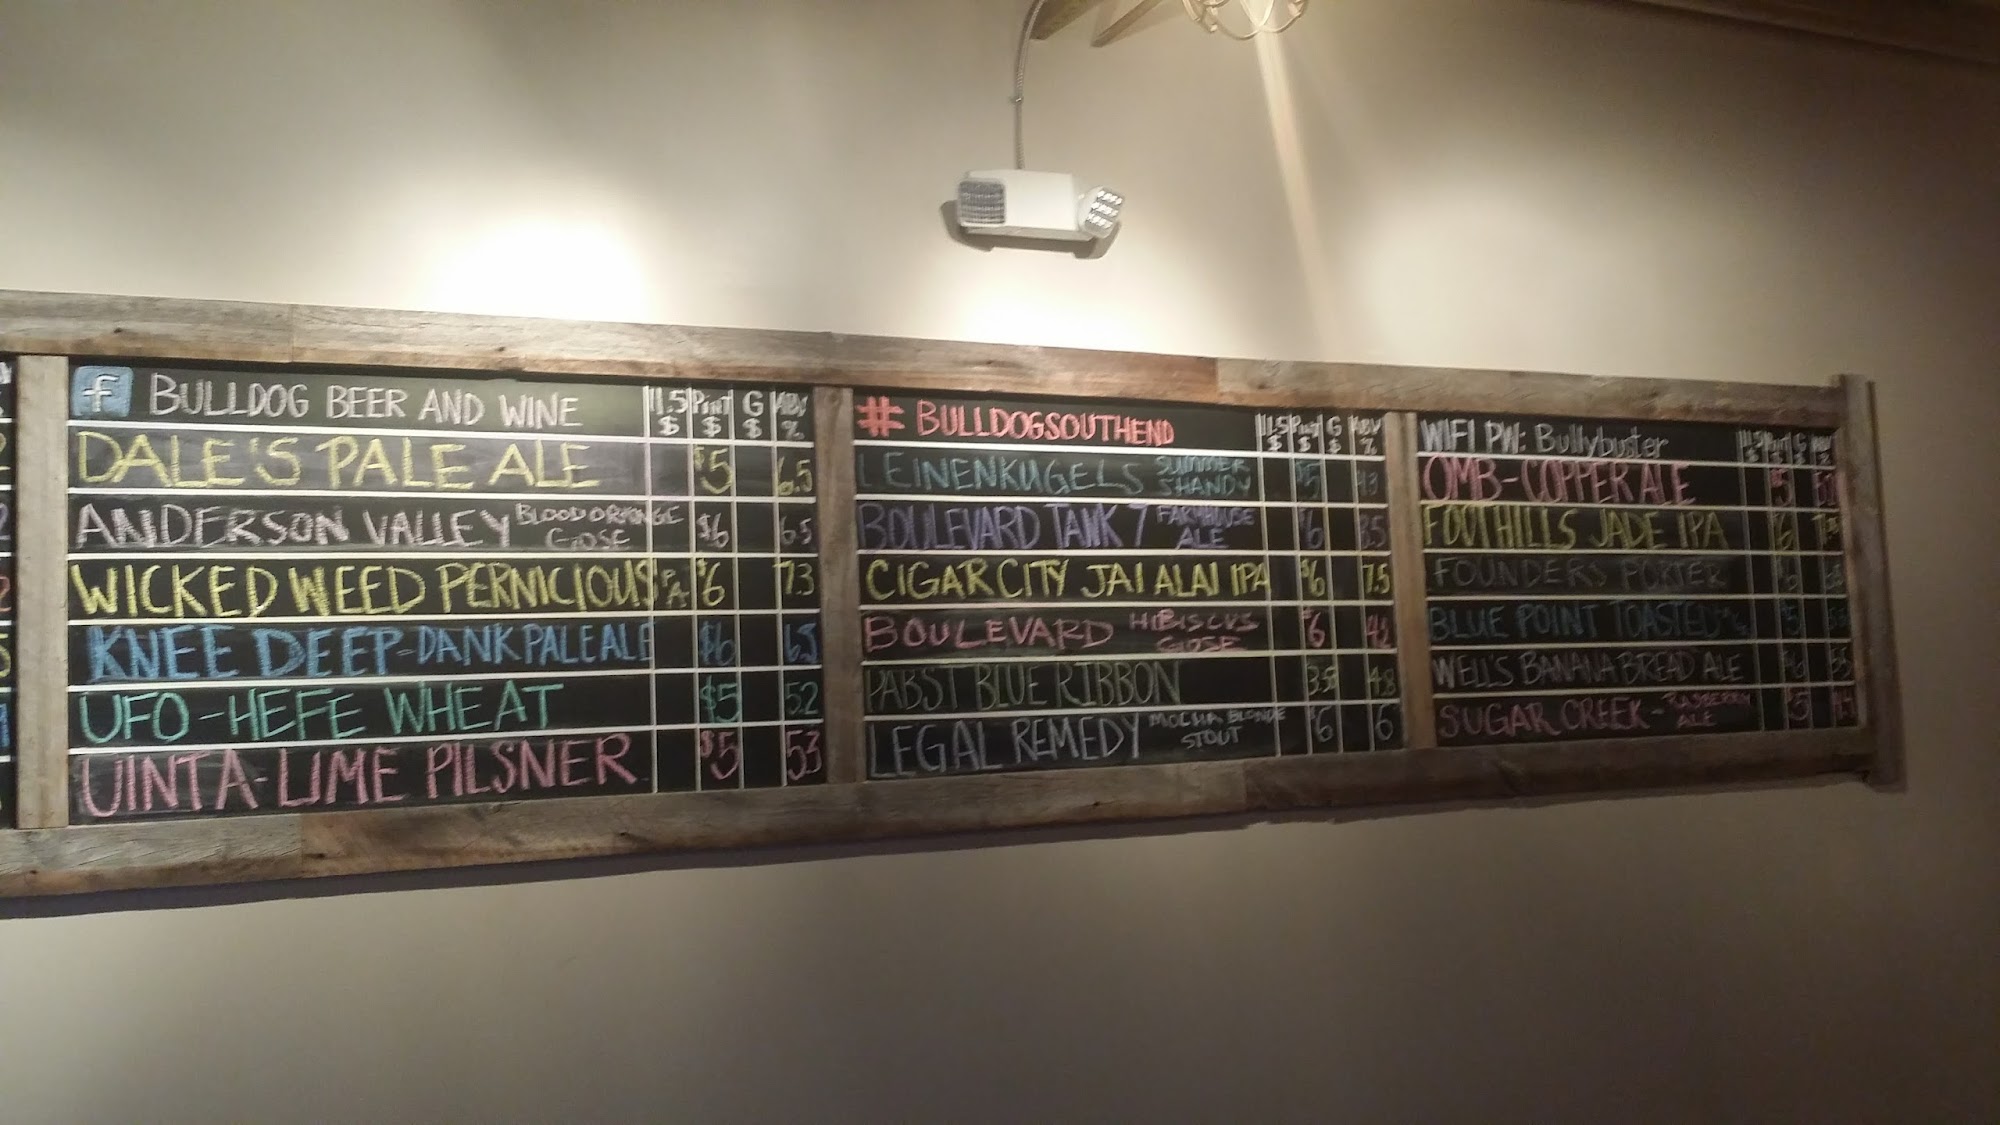 f BULLDOG BEER AND WINE 11.5 $ PINT $ G $ ABV %
DALE'S PALE ALE $5 6.5
ANDERSON VALLEY BLOOD ORANGE GOSE $6 6.5
WICKED WEED PERNICIOUS IPA $6 7.3
KNEE DEEP-DANK PALE ALE $6 6.5
UFO-HEFE WHEAT $5 5.2
UINTA-LIME PILSNER $5 53
# BULLDOGSOUTHEND 11.5 $ PINT $ G $ ABV %
LEINENKUGELS SUMMER SHANDY $5 4.3
BOULEVARD TANK 7 FARMHOUSE ALE $6 8.5
CIGAR CITY JAI ALAI IPA $6 7.5
BOULEVARD HIBISCUS GOSE $6 4.2
PABST BLUE RIBBON 3.50 4.8
LEGAL REMEDY MOCHA BLONDE STOUT $6 6
WIFI PW: Bullybuster 11.5 $ PINT $ G $ ABV %
OMB-COPPER ALE $5
FOOTHILLS JADE IPA $6
FOUNDERS PORTER $6
BLUE POINT TOASTED $5
WELL'S BANANA BREAD ALE $6
SUGAR CREEK-RASPBERRY ALE $5